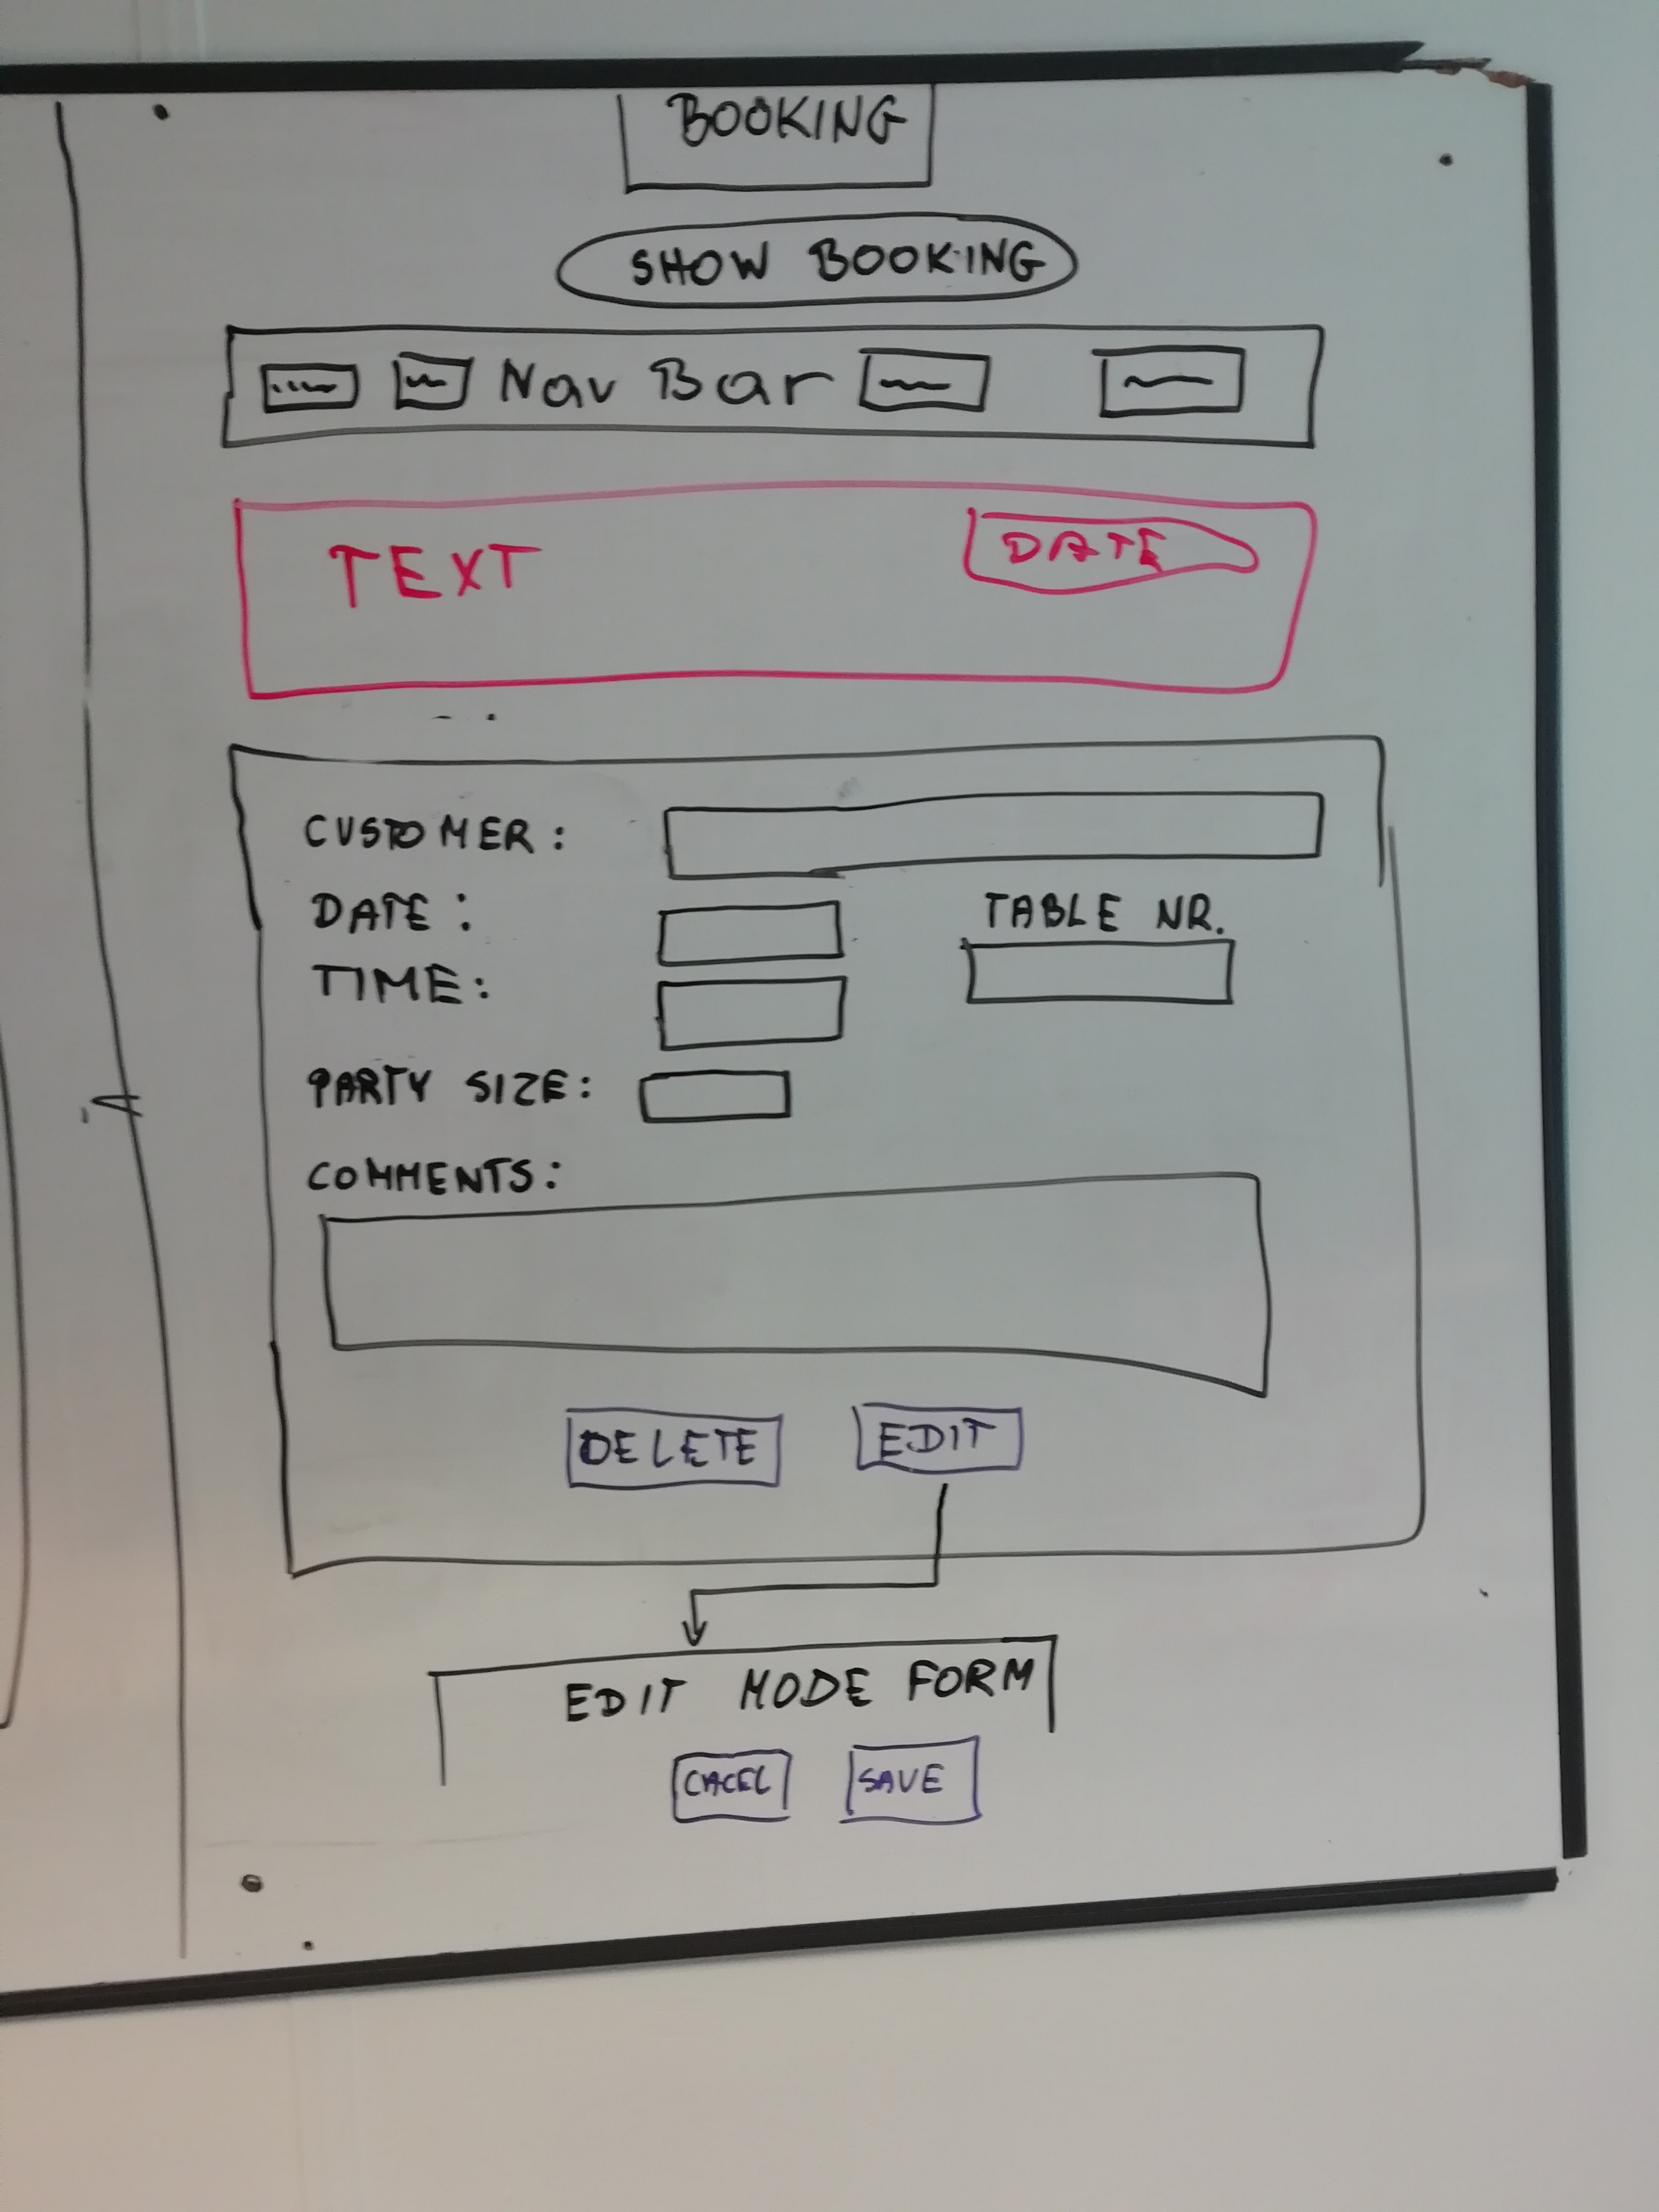 BOOKING
SHOW BOOKING
Nav Bar
TEXT DATE
CUSTOMER:
DATE: TABLE NR.
TIME:
PARTY SIZE:
COMMENTS:
DELETE EDIT
EDIT MODE FORM
CACEL SAVE